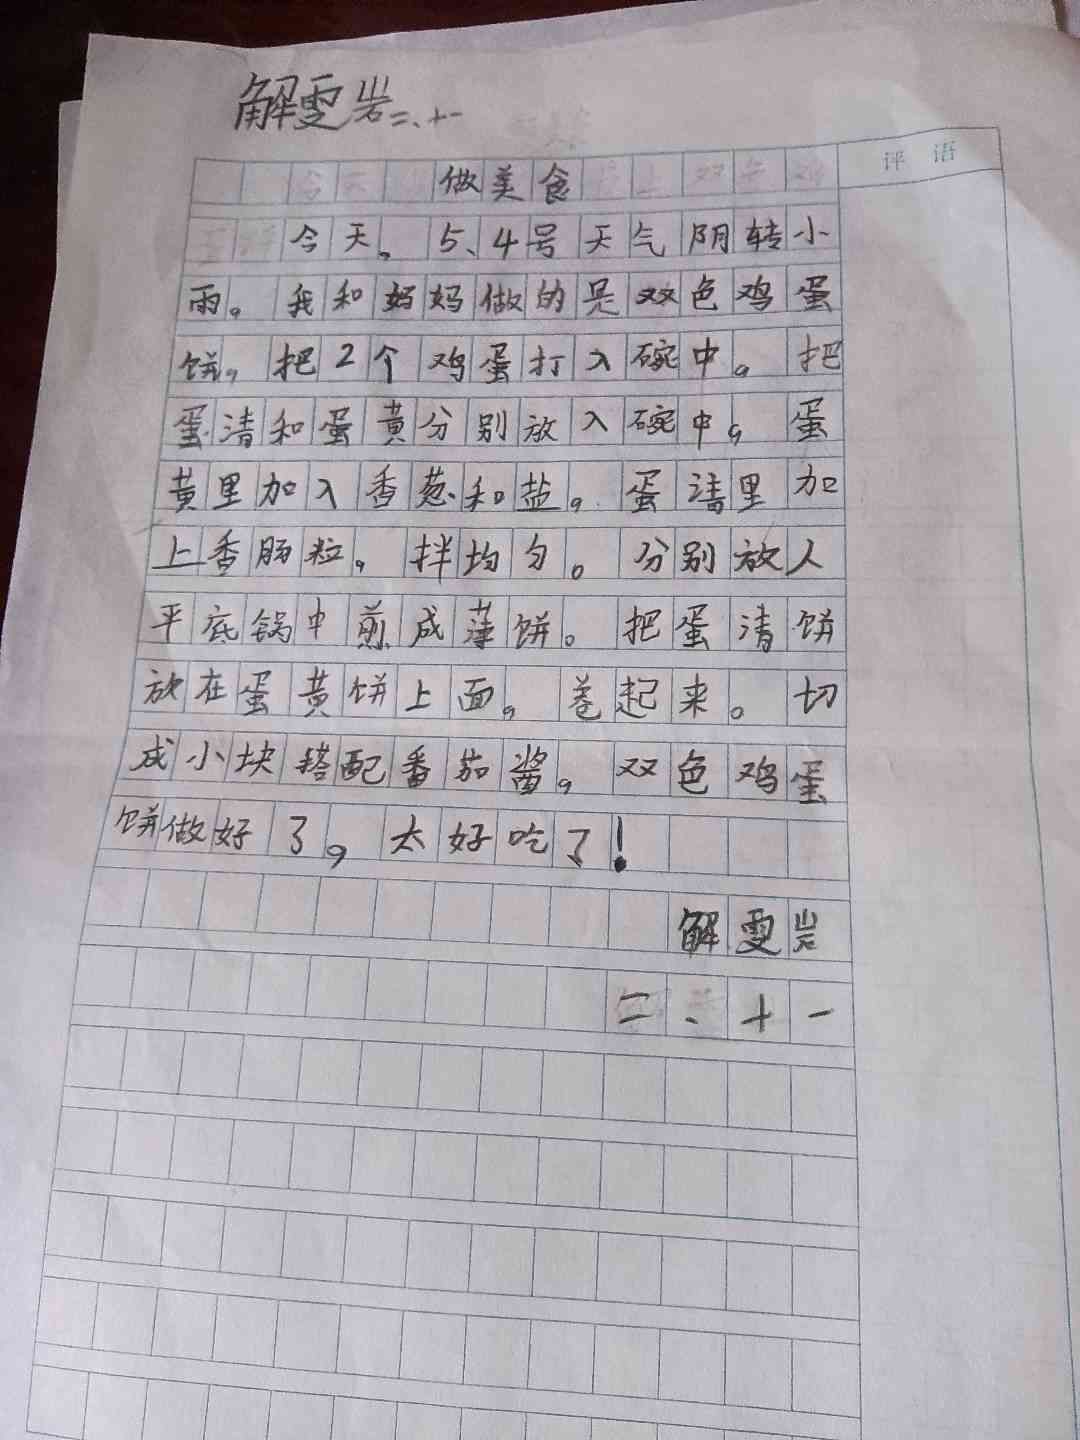 解雯岩二、十一
评语
做美食
今天。5、4号天气阴转小
雨。我和妈妈做的是双色鸡蛋
饼。把2个鸡蛋打入碗中。把
蛋清和蛋黄分别放入碗中。蛋
黄里加入香葱和盐。蛋清里加
上香肠粒。拌均匀。分别放人
平底锅中煎成薄饼。把蛋清饼
放在蛋黄饼上面。卷起来。切
成小块搭配番茄酱。双色鸡蛋
饼做好了,太好吃了!
解雯岩
二、十一